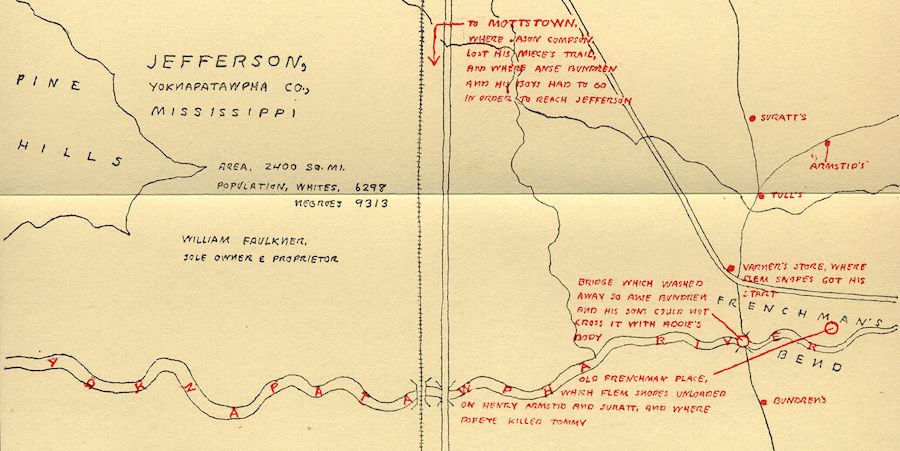 JEFFERSON,
YOKNAPATAWPHA CO.,
MISSISSIPPI
PINE
HILLS
AREA, 2400 SQ. MI.
POPULATION, WHITES, 6298
NEGROES 9313
WILLIAM FAULKNER,
SOLE OWNER & PROPRIETOR
TO MOTTSTOWN,
WHERE JASON COMPSON
LOST HIS NIECE'S TRAIL,
AND WHERE ANSE BUNDREN
AND HIS BOYS HAD TO GO
IN ORDER TO REACH JEFFERSON
SURATT'S
"ARMSTID'S"
TULL'S
VARNER'S STORE, WHERE
FLEM SNOPES GOT HIS
START
BRIDGE WHICH WASHED
AWAY SO ANSE BUNDREN
AND HIS SONS COULD NOT
CROSS IT WITH ADDIE'S
BODY
FRENCHMAN'S
BEND
YOKNAPATAWPHA RIVER
OLD FRENCHMAN PLACE,
WHICH FLEM SNOPES UNLOADED
ON HENRY ARMSTID AND SURATT, AND WHERE
POPEYE KILLED TOMMY
BUNDREN'S